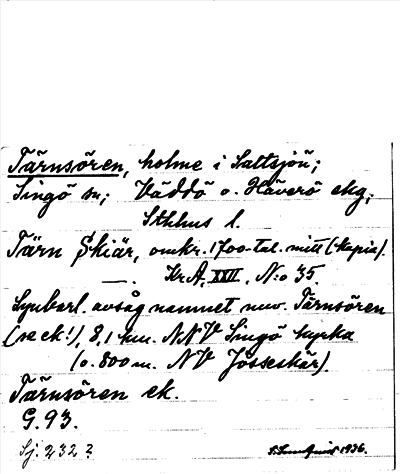 Tärnsören, holme i Saltsjön;
Singö sn; Väddö o. Häverö skg;
Sthlms l.
Tärn Skiär, omkr. 1700-tal. mitt (kopia).
—. Kr.A, XXII, N:o 35.
Synbarl. avsåg namnet nuv. Tärnsören
(se ek!), 8,1 km. NNV Singö kyrka
(o. 800 m. NV Jösseskär).
Tärnsören ek.
G. 93.
Sj. 232 ?
1936.